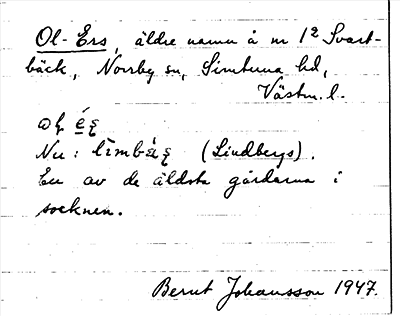 Ol-Ers, äldre namn å nr 1² Svart-
bäck, Norrby sn, Simtuna hd,
Västm. l.
Nu: (Lindbergs).
En av de äldsta gårdarna i
socknen.
Bernt Johansson 1947.